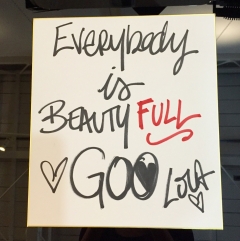 Everybody
is
BEAUTY FULL
GOO LOLA